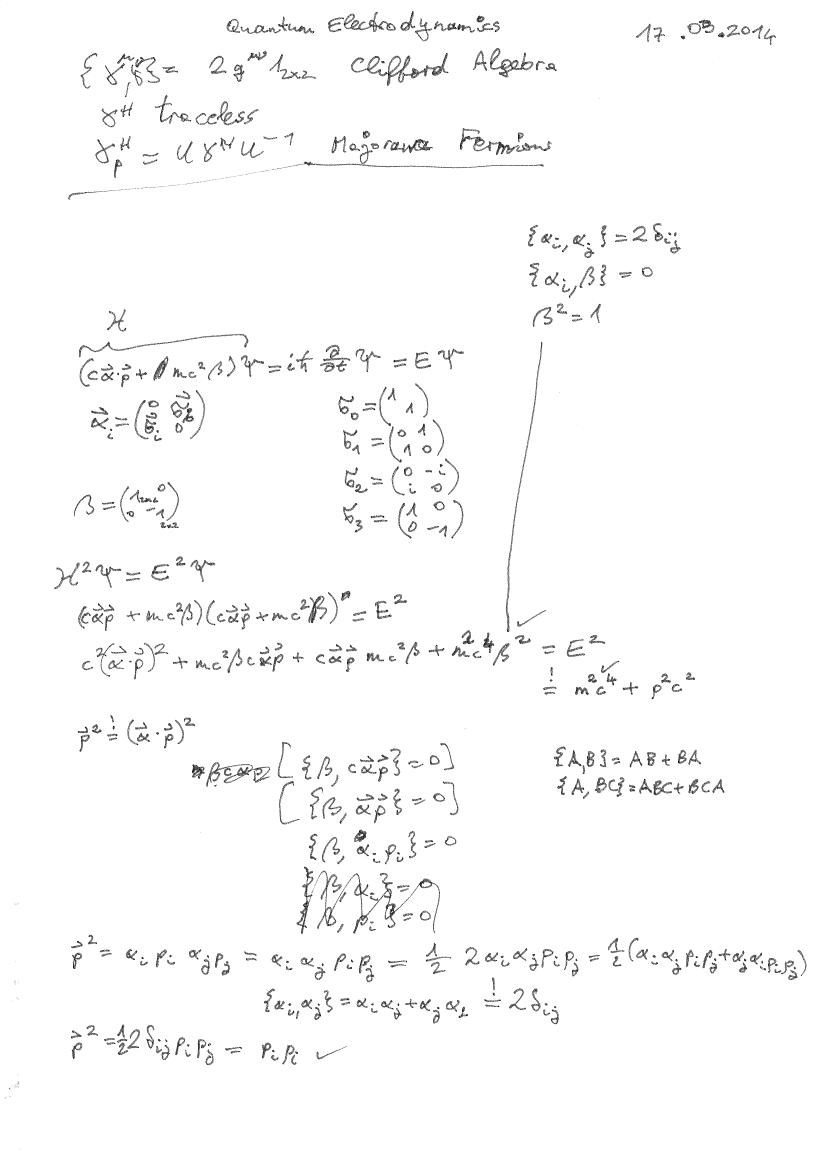 Quantum Electrodynamics
17.03.2014
{γ^μ, γ^ν} = 2g^{μν} 1_{2x2} Clifford Algebra
γ^μ traceless
γ^μ_p = U γ^μ U^{-1} Majorana Fermions
{α_i, α_j} = 2δ_{ij}
{α_i, β} = 0
β² = 1
H
(cα⃗·p⃗ + mc²β)Ψ = iħ ∂/∂t Ψ = EΨ
α⃗_i = (0 σ⃗_i; σ⃗_i 0)
σ_0 = (1 ; 1)
σ_1 = (0 1; 1 0)
σ_2 = (0 -i; i 0)
β = (1_{2x2} 0; 0 -1_{2x2})
σ_3 = (1 0; 0 -1)
H²Ψ = E²Ψ
(cα⃗p⃗ + mc²β)(cα⃗p⃗ + mc²β) = E²
c²(α⃗·p⃗)² + mc²βcα⃗p⃗ + cα⃗p⃗ mc²β + m²c⁴β² ✓ = E²
=! m²c⁴ ✓ + p²c²
p⃗² =! (α⃗·p⃗)²
[{β, cα⃗p⃗} = 0]
{A,B} = AB + BA
[{β, α⃗p⃗} = 0]
{A, BC} = ABC + BCA
{β, α_i p_i} = 0
{β, α_i} = 0
{β, p_i} = 0
p⃗² = α_i p_i α_j p_j = α_i α_j p_i p_j = 1/2 2α_i α_j p_i p_j = 1/2(α_i α_j p_i p_j + α_j α_i p_i p_j)
{α_i, α_j} = α_i α_j + α_j α_i =! 2δ_{ij}
p⃗² = 1/2 2δ_{ij} p_i p_j = p_i p_i ✓